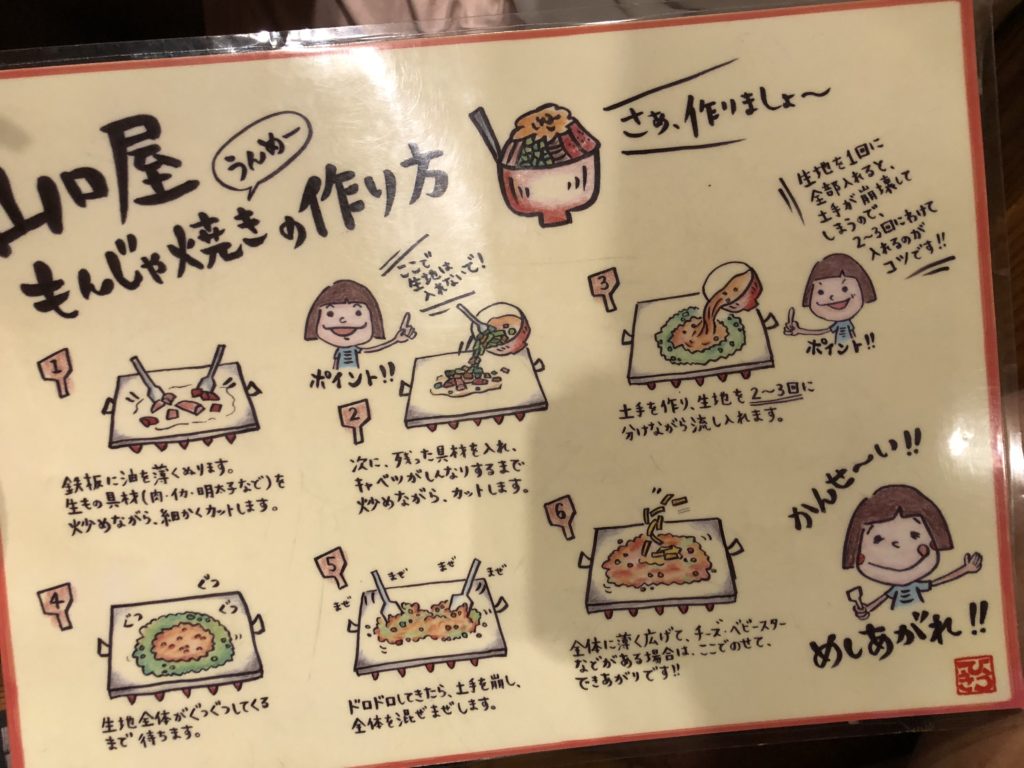 山口屋
うんめー
もんじゃ焼きの作り方
さぁ、作りましょ〜
1
鉄板に油を薄くぬります。
生もの具材(肉・イカ・明太子など)を
炒めながら、細かくカットします。
ここで
生地は
入れないで!
ポイント!!
2
次に、残った具材を入れ、
キャベツがしんなりするまで
炒めながら、カットします。
3
生地を1回に
全部入れると、
土手が崩壊して
しまうので、
2〜3回にわけて
入れるのが
コツです!!
ポイント!!
土手を作り、生地を2〜3回に
分けながら流し入れます。
4
ぐつ
ぐつ
ぐつ
生地全体がぐつぐつしてくる
まで待ちます。
5
まぜ
まぜ
まぜ
まぜ
ドロドロしてきたら、土手を崩し、
全体を混ぜまぜします。
6
全体に薄く広げて、チーズ・ベビースター
などがある場合は、ここでのせて、
できあがりです!!
かんせ〜い!!
めしあがれ!!